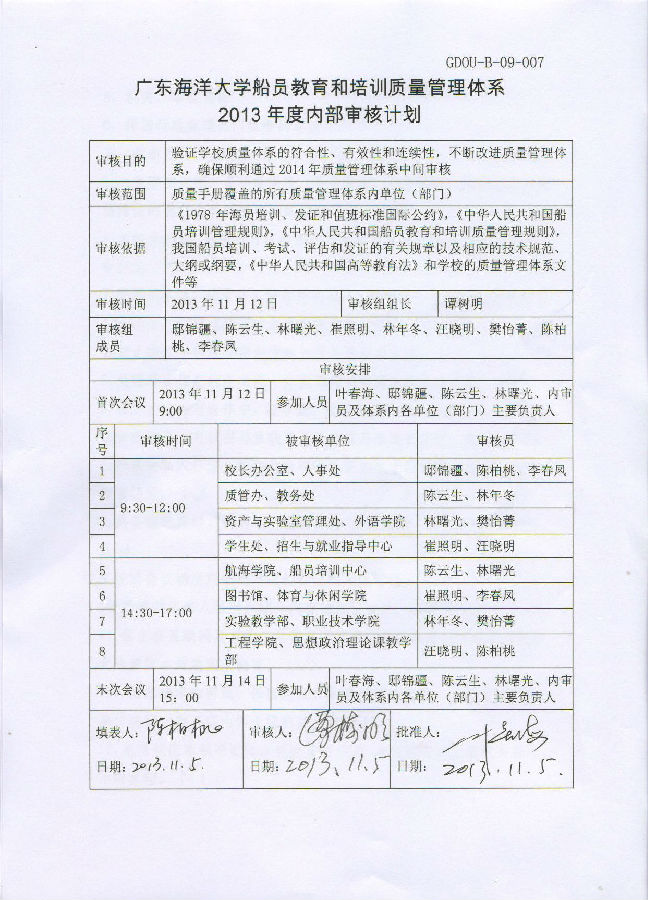 GDOU-B-09-007
广东海洋大学船员教育和培训质量管理体系
2013 年度内部审核计划
审核目的
验证学校质量体系的符合性、有效性和连续性，不断改进质量管理体
系，确保顺利通过 2014 年质量管理体系中间审核
审核范围
质量手册覆盖的所有质量管理体系内单位（部门）
审核依据
《1978 年海员培训、发证和值班标准国际公约》，《中华人民共和国船
员培训管理规则》，《中华人民共和国船员教育和培训质量管理规则》，
我国船员培训、考试、评估和发证的有关规章以及相应的技术规范、
大纲或纲要，《中华人民共和国高等教育法》和学校的质量管理体系文
件等
审核时间
2013 年 11 月 12 日
审核组组长
谭树明
审核组
成员
邸锦疆、陈云生、林曙光、崔照明、林年冬、汪晓明、樊怡菁、陈柏
桃、李春凤
审核安排
首次会议
2013 年 11 月 12 日
9:00
参加人员
叶春海、邸锦疆、陈云生、林曙光、内审
员及体系内各单位（部门）主要负责人
序
号
审核时间
被审核单位
审核员
1
9:30-12:00
校长办公室、人事处
邸锦疆、陈柏桃、李春凤
2
质管办、教务处
陈云生、林年冬
3
资产与实验室管理处、外语学院
林曙光、樊怡菁
4
学生处、招生与就业指导中心
崔照明、汪晓明
5
14:30-17:00
航海学院、船员培训中心
陈云生、林曙光
6
图书馆、体育与休闲学院
崔照明、李春凤
7
实验教学部、职业技术学院
林年冬、樊怡菁
8
工程学院、思想政治理论课教学
部
汪晓明、陈柏桃
末次会议
2013 年 11 月 14 日
15：00
参加人员
叶春海、邸锦疆、陈云生、林曙光、内审
员及体系内各单位（部门）主要负责人
填表人：陈柏桃
日期：2013.11.5.
审核人：谭树明
日期：2013.11.5
批准人：叶春海
日期：2013.11.5.